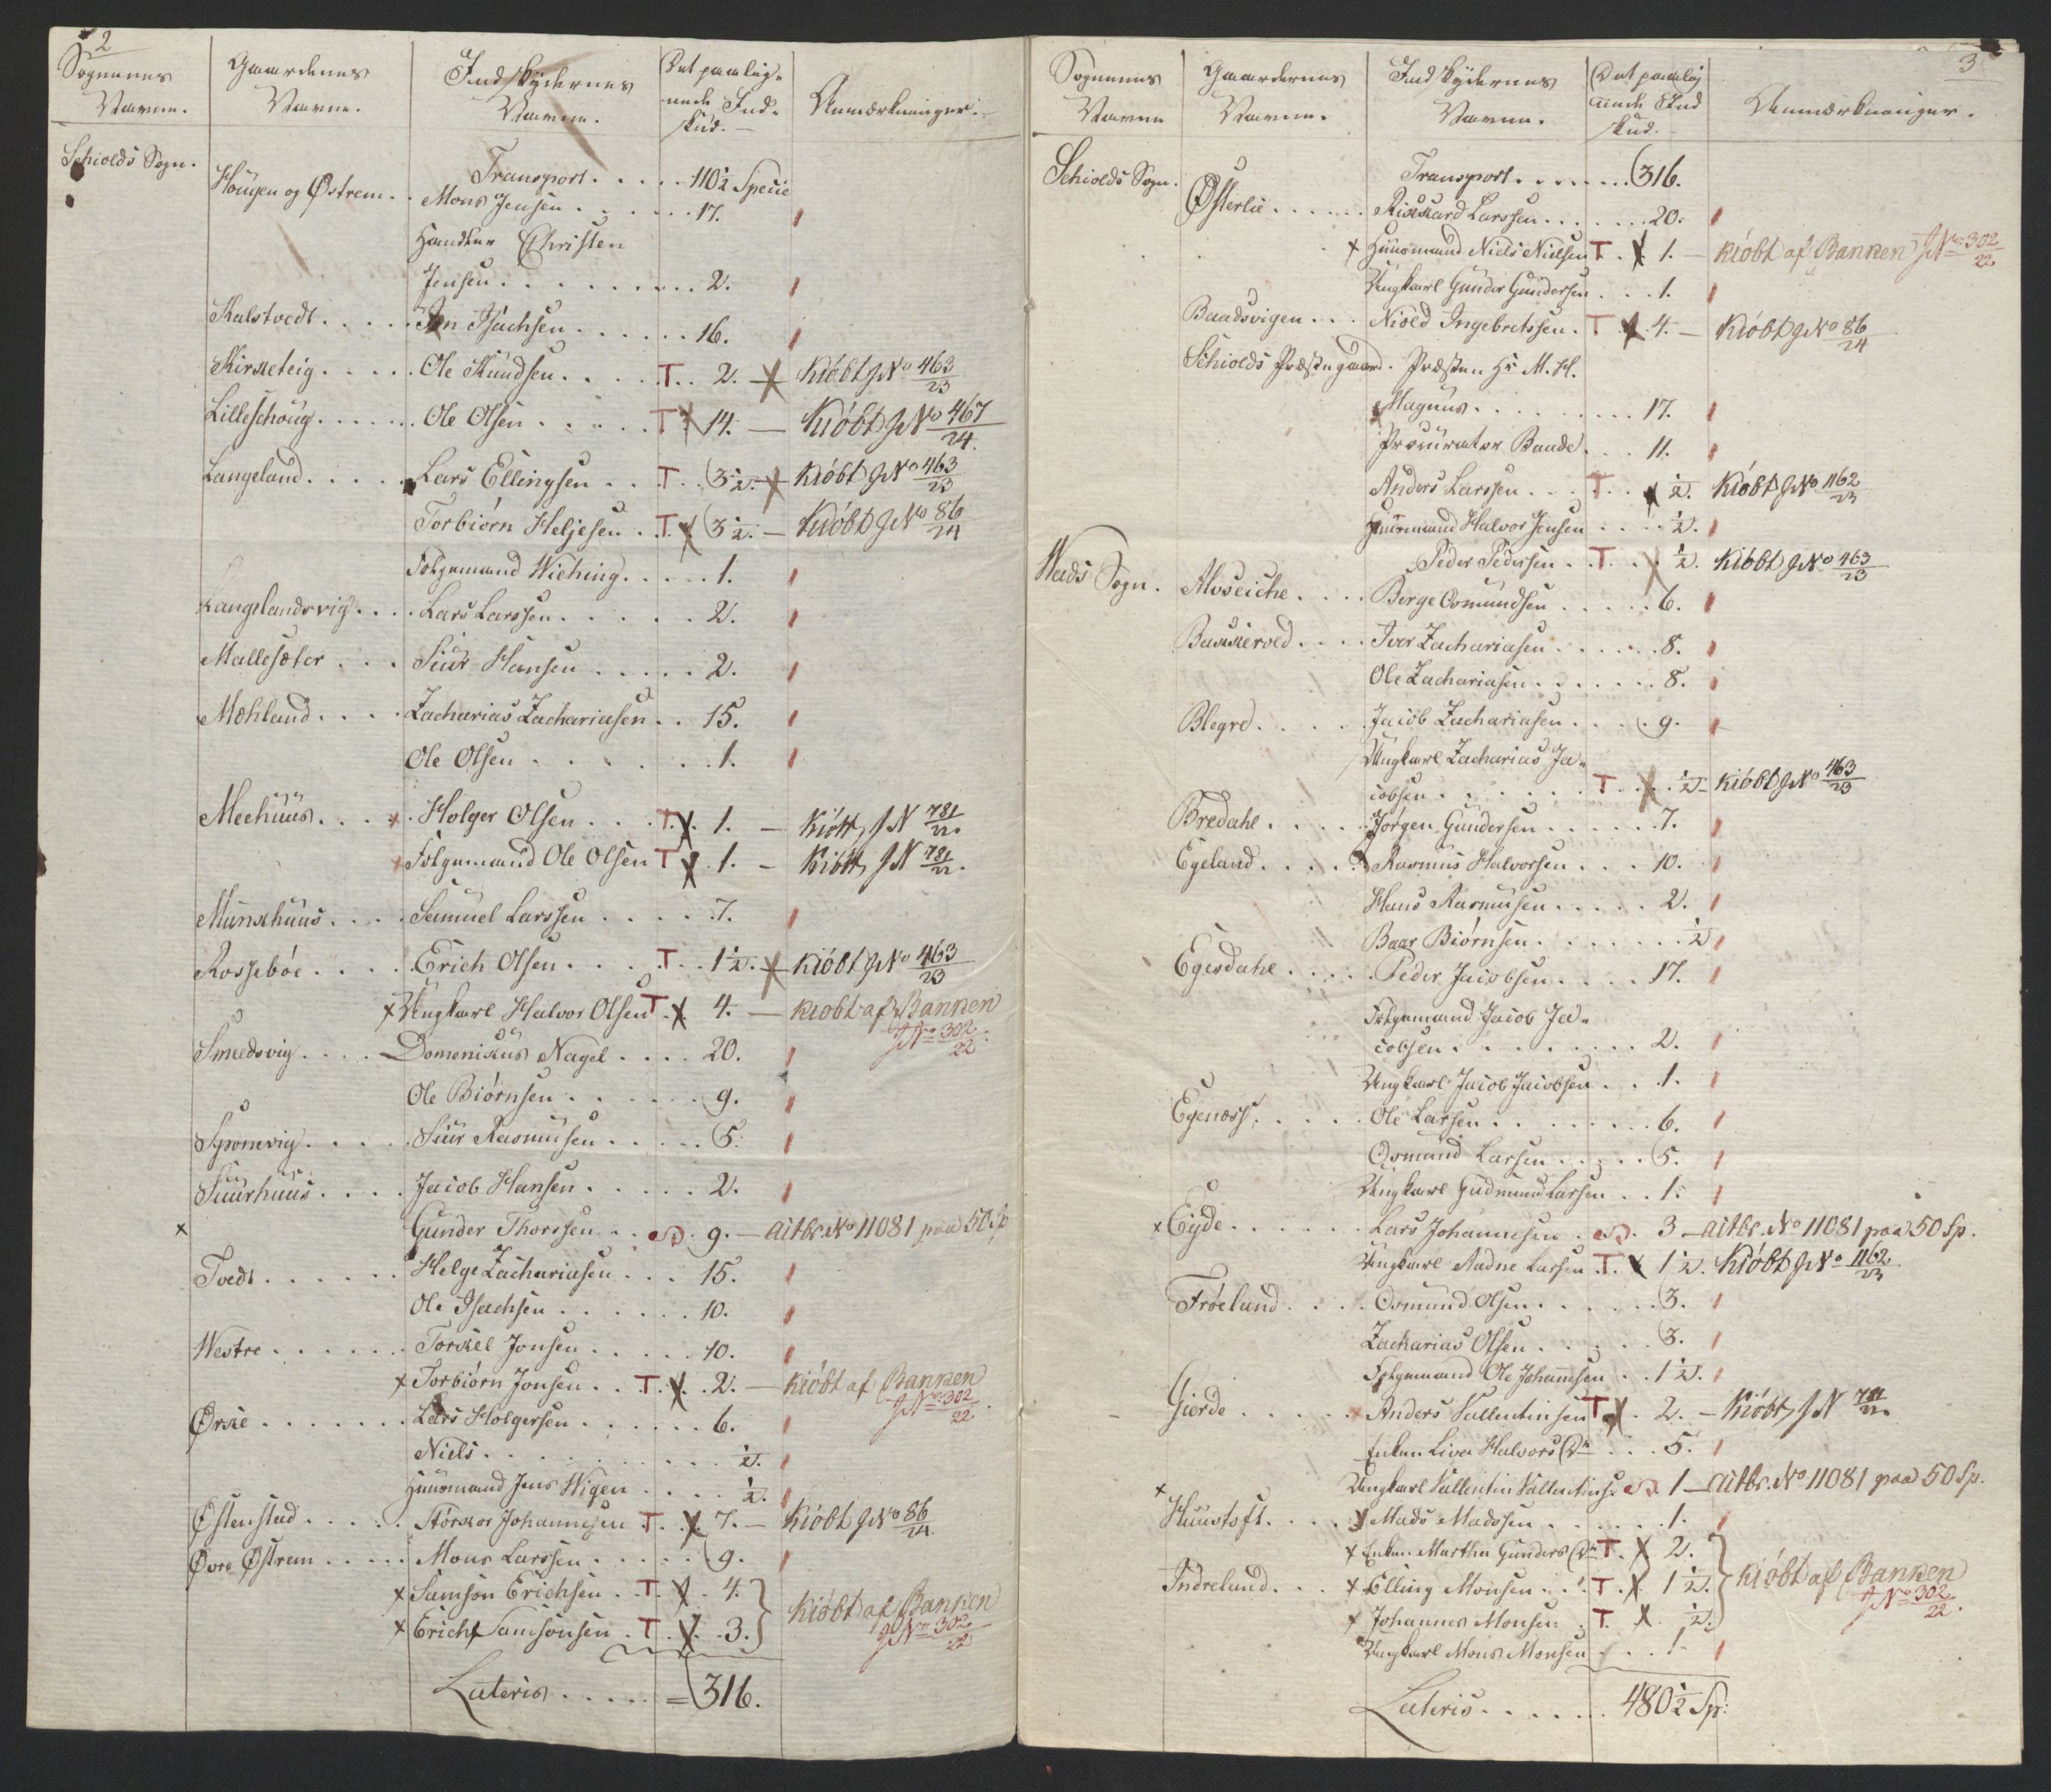 2
Sognenes Navne. Gaardenes Navne. Indskydernes Navne. Det paalignede Indskud. Anmærkninger.
Schiolds Sogn.
Transport . . . . . 110 1/2 Specie
Hougen og Østrem . . Mons Jensen . . . . . . 17.
Christen
Jensen . . . . . . . . . 2.
Kalstvedt . . . . . Jon Isachsen . . . . . . 16.
Kirketeig . . . . . Ole Knudsen . . . . T . . 2. Kiöbt J No 463/23
Lilleschoug . . . . . Ole Olsen . . . . . T 14. — Kiöbt J No 467/24.
Langeland . . . . . Lars Ellingsen . . T . . 3 1/2. Kiöbt J No 463/23
Torbiørn Heljesen . T. 3 1/2. — Kiöbt J No 86/24
Følgemand Wiching . . . . . 1.
Langelandsvig . . . . Lars Larssen . . . . . . 2.
Mallesæter . . . Siur Hansen . . . . . 2.
Mæhland . . . . Zacharias Zachariasen . . 15.
Ole Olsen . . . . . . . 1.
Meehuus . . . x . Holger Olsen . . . T. X. 1. — Kiöbt, J N 781/22.
x Følgemand Ole Olsen T X . 1. — Kiöbt, J N 781/22.
Munkhuus . . . . Samuel Larssen . . . . . 7.
Rossebøe . . . . . Erich Olsen . . . . T . . 1 1/2. Kiöbt J No 463/23
x Ungkarl Halvor Olsen T. X. 4. — kiöbt af Banken
J No 302/22.
Smedsvig . . . . Domenikus Nagel . . . . 20.
Ole Biørnsen . . . . . . . 9.
Sponevig . . . . . Siur Rasmusen . . . . . 5.
Suurhuus . . . . Jacob Hansen . . . . . 2.
x Gunder Thorssen . . . 9. — aitbr. No 11081 paa 50 Sp
Tvedt . . . . . . Helge Zachariasen . . . 15.
Ole Isachsen . . . . . . 10.
Westre . . . . . . Torkel Jonsen . . . . . 10.
x Torbiørn Jonsen . . T. X. . 2. — kiöbt af Banken
J No 302/22.
Ørke . . . . . . . Lars Holgersen . . . . . . 6.
Niels . . . . . . . . . . 1/2.
Huusmand Jens Wigen . . . . 1/2.
Østenstad . . . . . Storkor Johannesen T. . X 7. — Kiöbt J No 86/24.
Øvre Østrem . . . . . Mons Larssen . . . . . 9.
x Samson Erichsen . . T X . 4.
x Erich Samsonsen . T . X . 3. kiöbt af Banken
J No 302/22
Lateris . . . . . = 316.
3
Sognenes Navne Gaardernes Navne. Indskydernes Navne. Det paalignende Indskud. Anmærkninger.
Schiolds Sogn. Transport . . . . . . . 316.
Østerlie . . . . . . Rikkard Larssen . . . . . . 20.
x Huusmand Niels Nielsen T . X 1. — kiöbt af Banken J No 302/22
Ungkarl Gunder Gundersen . . . 1.
Baadsvigen . . . Niold Ingebretssen . T X 4. — Kiöbt J No 86/24
Schiolds Præstegaard . Præsten Hr M. H.
Magnus . . . . . . . . . 17.
Procurator Baade . . . 11.
Anders Larssen . . . T . . X 1/2. Kiöbt J No 1162/23
Huusmand Halvor Jensen . . . . 1/2.
Peder Pedersen . . T . . X 1/2. Kiöbt J No 463/23
Wads Sogn. Alvseiche . . . . Børge Osmundsen . . . . . 6.
Bukkevold . . . . Iver Zachariasen . . . . . . 8.
Ole Zachariasen . . . . . . . 8.
Blegre . . . . . . Jacob Zachariasen . . . . 9.
Ungkarl Zacharias Ja-
cobsen . . . . . . T . X . 1/2 — kiöbt J No 463/23
Bredahl . . . . . Jørgen Gundersen . . . . . . 7.
Egeland . . . . . Rasmus Halvorsen . . . 10.
Hans Rasmusen . . . . . 2.
Baar Biørnsen . . . . . . . 1/2
Egesdahl . . . . . Peder Jacobsen . . . . . 17.
Følgemand Jacob Ja-
cobsen . . . . . . . . . 2.
Ungkarl Jacob Jacobsen . . . 1.
Egenæss . . . . . Ole Larsen . . . . . . . . 6.
Osmund Larsen . . . . . 5.
Ungkarl Gudmund Larsen . . 1.
x Eyde . . . . . . Lars Johannesen . . 3 — aitbr. No 11081 paa 50 Sp.
Ungkarl Aadne Larsen T. X 1 1/2. Kiöbt J No 1162/23
Frøeland . . . . Osmund Olsen . . . . . . . 3.
Zacharias Olsen . . . . . . 3.
Følgemand Ole Johannsen . . 1 1/2.
Gierde . . . . . x Anders Vallentinsen T X . 2. — Kiöbt, J N 781/22
Enken Liva Halvors D. . . . 5.
x Ungkarl Vallentin Vallentins. . 1 — aitbr. No 11081 paa 50 Sp.
Huustoft . . . . Mads Madssen . . . . . . 1.
x Enken Martha Gunders D. T. X 2.
Indreland . . . x Elling Monsen . . . T. X. 1 1/2. kiöbt af Banken
J No 302/22.
x Johannes Monsen . T. X 1/2.
Ungkarl Mons Monsen . . . 1.
Lateris . . . . . . . 480 1/2 Sp.